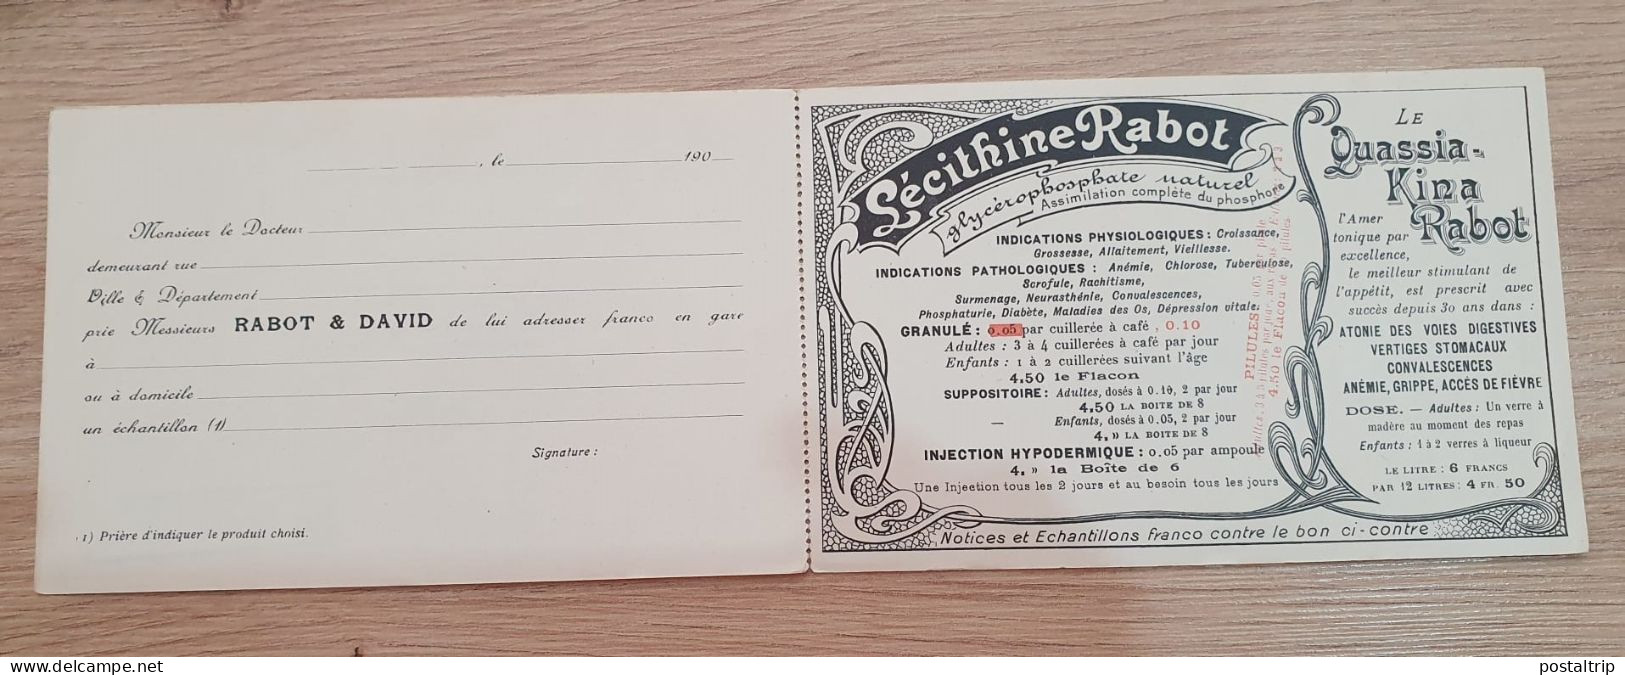 , le 190
Monsieur le Docteur
demeurant rue
Ville & Département
prie Messieurs RABOT & DAVID de lui adresser franco en gare
à
ou à domicile
un échantillon (1)
Signature :
1) Prière d'indiquer le produit choisi.
Lécithine Rabot
glycérophosphate naturel
Assimilation complète du phosphore
INDICATIONS PHYSIOLOGIQUES : Croissance,
Grossesse, Allaitement, Vieillesse.
INDICATIONS PATHOLOGIQUES : Anémie, Chlorose, Tuberculose,
Scrofule, Rachitisme,
Surmenage, Neurasthénie, Convalescences,
Phosphaturie, Diabète, Maladies des Os, Dépression vitale.
GRANULÉ : 0.05 par cuillerée à café, 0.10
Adultes : 3 à 4 cuillerées à café par jour
Enfants : 1 à 2 cuillerées suivant l'âge
4.50 le Flacon
SUPPOSITOIRE : Adultes, dosés à 0.10, 2 par jour
4.50 LA BOITE DE 8
— Enfants, dosés à 0.05, 2 par jour
4. » LA BOITE DE 8
INJECTION HYPODERMIQUE : 0.05 par ampoule
4. » la Boîte de 6
Une Injection tous les 2 jours et au besoin tous les jours
PILULES 0.05 par pilule
Adultes, 3 à 5 pilules par jour, aux repas
4.50 le Flacon de pilules
LE
Quassia-
Kina
Rabot
l'Amer
tonique par
excellence,
le meilleur stimulant de
l'appétit, est prescrit avec
succès depuis 30 ans dans :
ATONIE DES VOIES DIGESTIVES
VERTIGES STOMACAUX
CONVALESCENCES
ANÉMIE, GRIPPE, ACCÈS DE FIÈVRE
DOSE. — Adultes : Un verre à
madère au moment des repas
Enfants : 1 à 2 verres à liqueur
LE LITRE : 6 FRANCS
PAR 12 LITRES : 4 FR. 50
Notices et Echantillons franco contre le bon ci-contre
www.delcampe.net
postaltrip